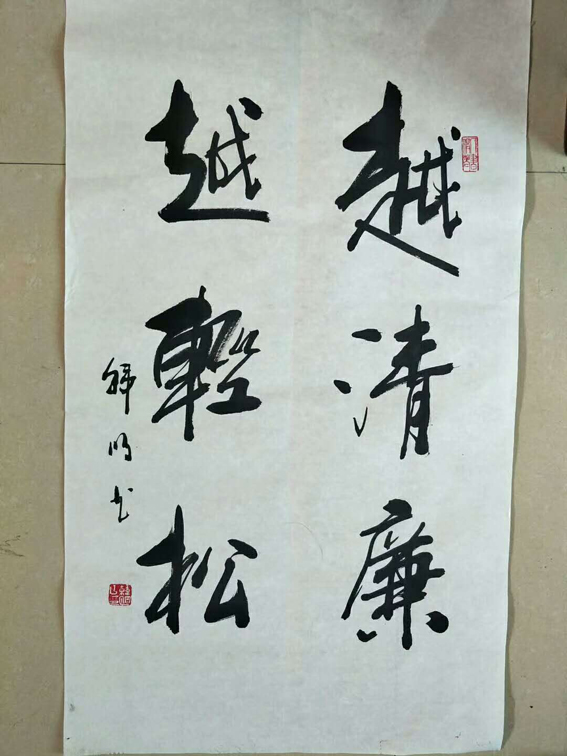 越清廉
越輕松
明书